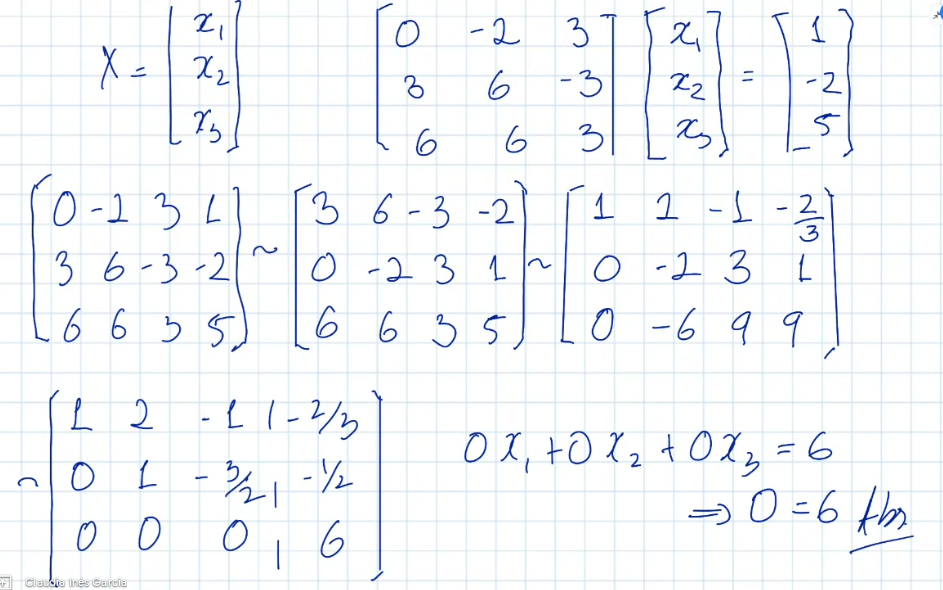 X = [x₁ x₂ x₃] [0 -2 3; 3 6 -3; 6 6 3] [x₁ x₂ x₃] = [1 -2 5]
[0 -2 3 1; 3 6 -3 -2; 6 6 3 5] ~ [3 6 -3 -2; 0 -2 3 1; 6 6 3 5] ~ [1 2 -1 -2/3; 0 -2 3 1; 0 -6 9 9]
~ [1 2 -1 | -2/3; 0 1 -3/2 | -1/2; 0 0 0 | 6]
0x₁ + 0x₂ + 0x₃ = 6
⇒ 0 = 6 Abs
Claudia Inés García